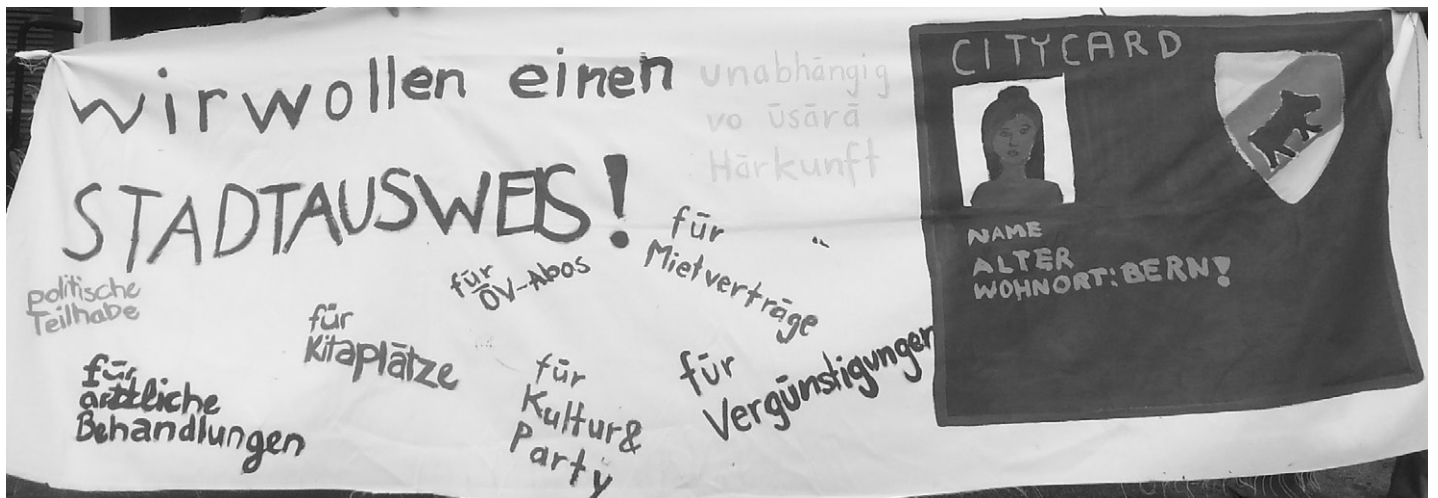 wir wollen einen
STADTAUSWEIS!
unabhängig
vo üsärä
Härkunft
politische
Teilhabe
für
ärztliche
Behandlungen
für
Kitaplätze
für
ÖV-Abos
für
Kultur&
Party
für
Mietverträge
für
Vergünstigungen
CITYCARD
NAME
ALTER
WOHNORT: BERN!